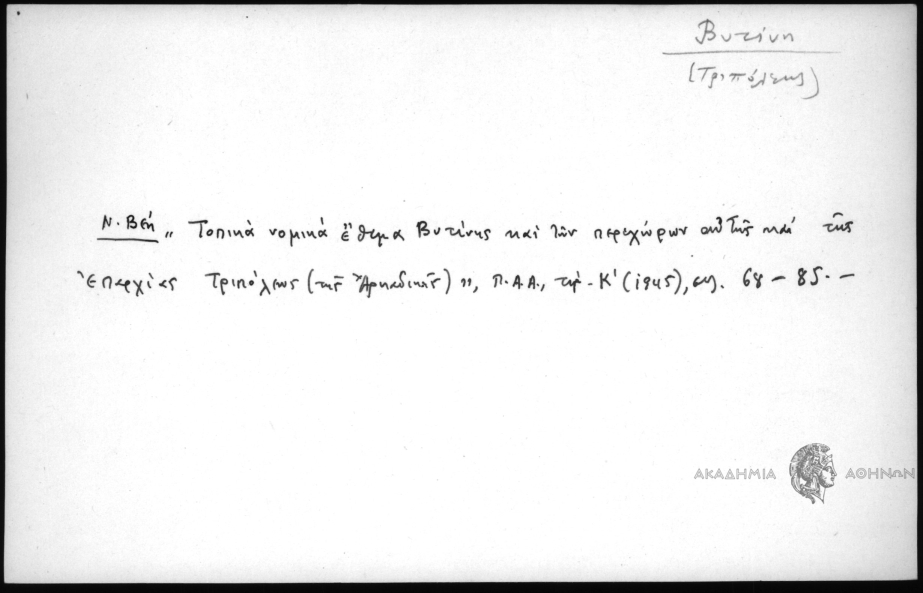 Βυτίνη
(Τριπόλεως)
Ν. Βέη „ Τοπικὰ νομικὰ ἔθιμα Βυτίνης καὶ τῶν περιχώρων αὐτῆς καὶ τῆς
Ἐπαρχίας Τριπόλεως (τῆς Ἀρκαδικῆς) ”, Π.Α.Α., τόμ. Κ' (1945), σελ. 68 – 85. –
ΑΚΑΔΗΜΙΑ ΑΘΗΝΩΝ